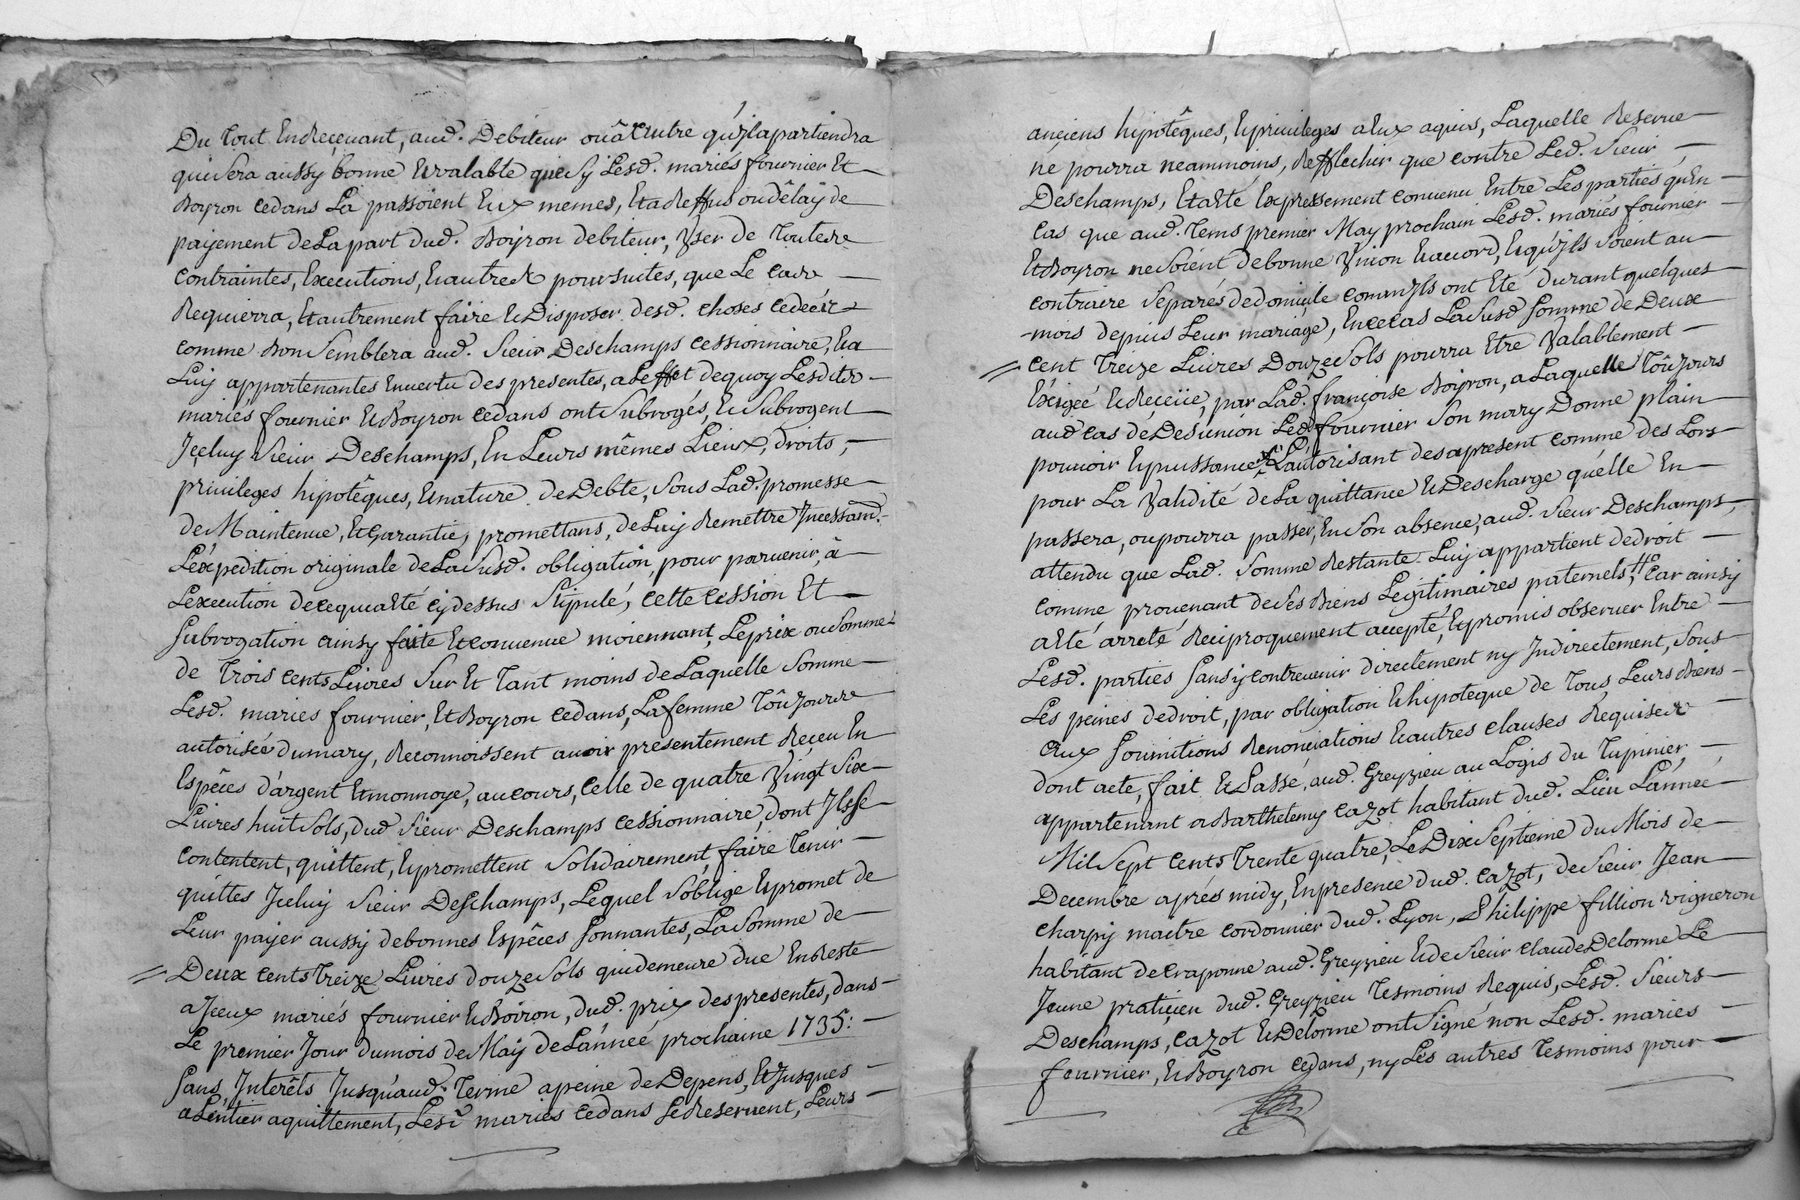 Du tout en recevant, aud. Debiteur ou â autre qu'jl apartiendra
qui sera aussy bonne et valable que sy Lesd. mariés fournier Et
Boyron cedans La passoient Eux memes, Et a Reffus ou dêlay de
payement de La part dud. Boyron debiteur, Vser de toutes
contraintes, Executions, et autres poursuites, que Le cas
Requierra, et autrement faire et Disposer desd. choses cedées
comme Bon semblera aud. Sieur Deschamps cessionnaire, et a
Luy appartenantes en vertu des presentes, a L'effet de quoy Lesdits
mariés fournier et Boyron cedans ont subrogés, et subrogent
Jceluy Sieur Deschamps, En Leurs mêmes Lieux, droits,
privileges hipotêques, et nature de Debte, sous Lad. promesse
de Maintenue, et Garantie, promettans, de Luy Remettre Jncessamt.
L'éxpedition originale de La susd. obligation, pour parvenir, â
L'execution de ce qu'a été cy dessus stipulé, cette cession Et
subrogation ainsy faite et convenue moiennant Le prix ou somme
de trois cents Livres sur Et tant moins de Laquelle somme
Lesd. maries fournier, Et Boyron cedans, La femme toûjours
autorisée du mary, Reconnoissent avoir presentement Receu En
Espêces d'argent et monnoye, au cours, celle de quatre Vingt six
Livres huit sols, dud. Sieur Deschamps cessionnaire, dont Jls se
contentent, quittent, et promettent solidairement, faire tenir
quittes Jceluy Sieur Deschamps, Lequel s'oblige et promet de
Leur payer aussy de bonnes Espêces sonnantes, La somme de
Deux cents treize Livres douze sols qui demeure due En Reste
a Jceux mariés fournier et Boiron, dud. prix des presentes, dans
Le premier Jour du mois de May de L'année prochaine 1735:
sans Jnterêts Jusqu'aud. terme a peine de Depens, Et Jusques
a L'entier aquittement, Lesd. maries cedans se Reservent, Leurs
anciens hipotêques, et privileges a Eux aquis, Laquelle Reserve
ne pourra neammoins, Refflechir que contre Led. Sieur
Deschamps, Et a été Expressement convenu Entre Les parties qu'En
cas que aud. tems premier May prochain Lesd. mariés fournier
Et Boyron ne soient de bonne Vnion et accord, et qu'jls soient au
contraire separés de domicile comm'jls ont Eté durant quelques
mois depuis Leur mariage, En ce cas La susd. somme de Deux
cent treize Livres Douze sols pourra Etre Valablement
Exigée et Receüe, par Lad. françoise Boyron, a Laquelle toûjours
aud. cas de Desunion Led. fournier son mary Donne plain
pouvoir et puissance L'autorisant des apresent comme des Lors
pour La Validité de La quittance et Descharge qu'elle En
passera, ou pourra passer, En son absence, aud. Sieur Deschamps,
attendu que Lad. somme Restante Luy appartient de droit
comme provenant de ses Biens Legitimaires paternels, car ainsy
a été arreté Reciproquement accepté, et promis observer Entre
Lesd. parties sans y contrevenir directement ny Jndirectement, sous
Les peines de droit, par obligation et hipoteque de tous Leurs Biens
aux soumitions Renonciations et autres clauses Requises
dont acte, fait et Passé, aud. Greyzieu au Logis du Tupinier,
appartenant a Barthelemy Cazot habitant dud. Lieu L'année
Mil sept cents trente quatre, Le Dix Septieme du Mois de
Decembre aprés midy, En presence dud. Cazot, de Sieur Jean
Charpy maitre cordonnier dud. Lyon, Philippe fillion vigneron
habitant de Craponne aud. Greyzieu et de Sieur Claude Delorme Le
Jeune praticien dud. Greyzieu tesmoins Requis, Lesd. Sieurs
Deschamps, Cazot et Delorme ont signé non Lesd. maries
fournier, et Boyron cedans, ny Les autres tesmoins pour